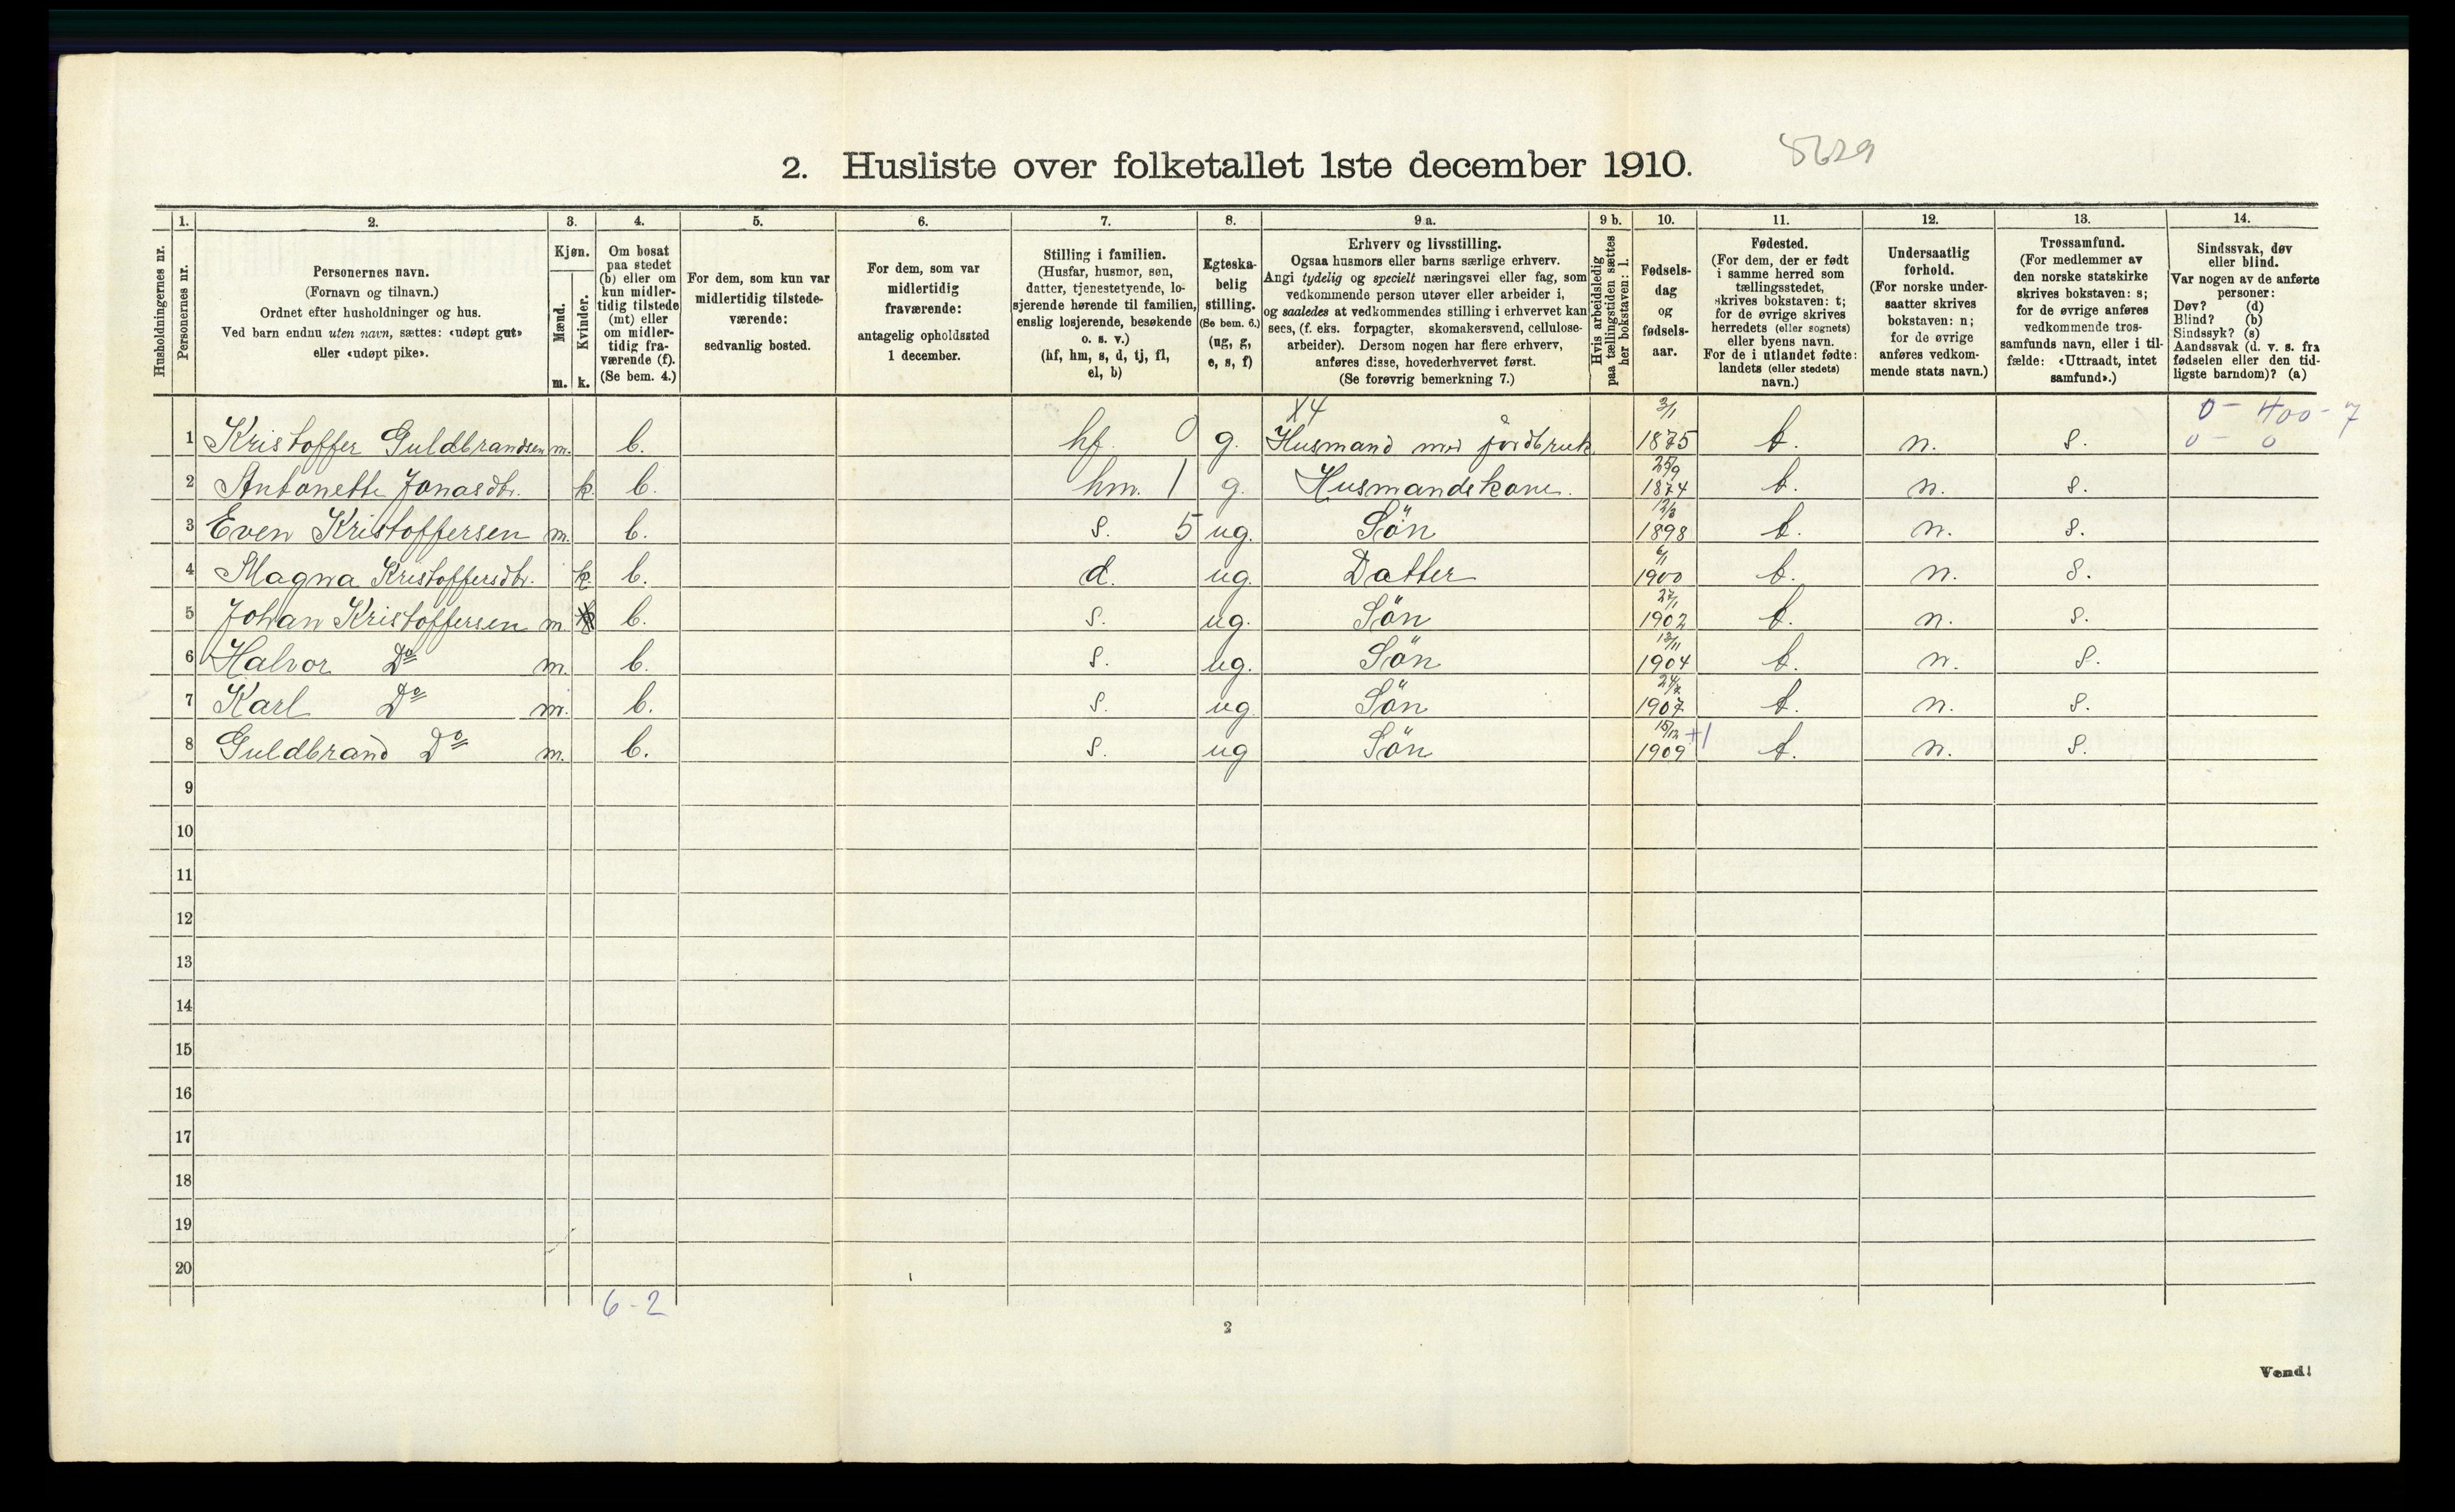 2. Husliste over folketallet 1ste december 1910. 5629
1. 2. 3. 4. 5. 6. 7. 8. 9 a. 9 b. 10. 11. 12. 13. 14.
Husholdningernes nr.
Personernes nr.
Personernes navn.
(Fornavn og tilnavn.)
Ordnet efter husholdninger og hus.
Ved barn endnu uten navn, sættes: «udøpt gut»
eller «udøpt pike».
Kjøn.
Mænd.
Kvinder.
m. k.
Om bosat
paa stedet
(b) eller om
kun midler-
tidig tilstede
(mt) eller
om midler-
tidig fra-
værende (f).
(Se bem. 4.)
For dem, som kun var
midlertidig tilstede-
værende:
sedvanlig bosted.
For dem, som var
midlertidig
fraværende:
antagelig opholdssted
1 december.
Stilling i familien.
(Husfar, husmor, søn,
datter, tjenestetyende, lo-
sjerende hørende til familien,
enslig losjerende, besøkende
o. s. v.)
(hf, hm, s, d, tj, fl,
el, b)
Egteska-
belig
stilling.
(Se bem. 6.)
(ug, g,
e, s, f)
Erhverv og livsstilling.
Ogsaa husmors eller barns særlige erhverv.
Angi tydelig og specielt næringsvei eller fag, som
vedkommende person utøver eller arbeider i,
og saaledes at vedkommendes stilling i erhvervet kan
sees, (f. eks. forpagter, skomakersvend, cellulose-
arbeider). Dersom nogen har flere erhverv,
anføres disse, hovederhvervet først.
(Se forøvrig bemerkning 7.)
Hvis arbeidsledig
paa tællingstiden sættes
her bokstaven: l.
Fødsels-
dag
og
fødsels-
aar.
Fødested.
(For dem, der er født
i samme herred som
tællingsstedet,
skrives bokstaven: t;
for de øvrige skrives
herredets (eller sognets)
eller byens navn.
For de i utlandet fødte:
landets (eller stedets)
navn.)
Undersaatlig
forhold.
(For norske under-
saatter skrives
bokstaven: n;
for de øvrige
anføres vedkom-
mende stats navn.)
Trossamfund.
(For medlemmer av
den norske statskirke
skrives bokstaven: s;
for de øvrige anføres
vedkommende tros-
samfunds navn, eller i til-
fælde: «Uttraadt, intet
samfund».)
Sindssvak, døv
eller blind.
Var nogen av de anførte
personer:
Døv? (d)
Blind? (b)
Sindssyk? (s)
Aandssvak (d. v. s. fra
fødselen eller den tid-
ligste barndom)? (a)
X4 3/1 0 - 400 - 7
1 Kristoffer Guldbrandsen m. b. hf. 0 g. Husmand med jordbruk 1875 t. n. s. 0 - 0
25/9
2 Antonette Jonasdtr. k. b. hm. 1 g. Husmandskone. 1874 t. n. s.
12/3
3 Even Kristoffersen m. b. s. 5 ug. Sön 1898 t. n. s.
6/1
4 Magna Kristoffersdtr. k. b. d. ug. Datter 1900 t. n. s.
27/1
5 Johan Kristoffersen m. b. s. ug. Sön 1902 t. n. s.
13/11
6 Halvor Do m. b. s. ug. Sön 1904 t. n. s.
7 Karl Do m. b. s. ug Sön 1907 t. n. s.
15/12 +1
8 Guldbrand Do m. b. s. ug Sön 1909 t. n. s.
9
10
11
12
13
14
15
16
17
18
19
20
6 - 2
2
Vend!